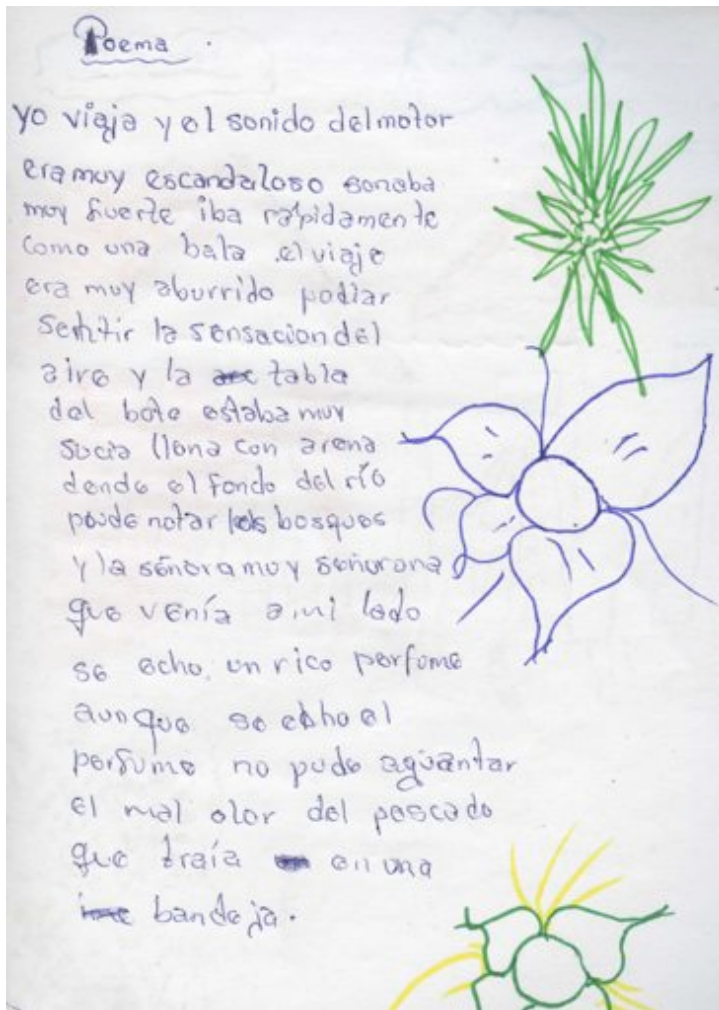 Poema.
yo viaja y el sonido del motor
era muy escandaloso sonaba
muy fuerte iba rápidamente
como una bala .el viaje
era muy aburrido podiar
sentir la sensacion del
aire y la tabla
del bote estaba muy
sucia llena con arena
dende el fondo del río
poude notar los bosques
y la señora muy señorona
que venía a mi lado
se echo un rico perfume
aunque se echo el
perfume no pude aguantar
el mal olor del pescado
que traía en una
bandeja.